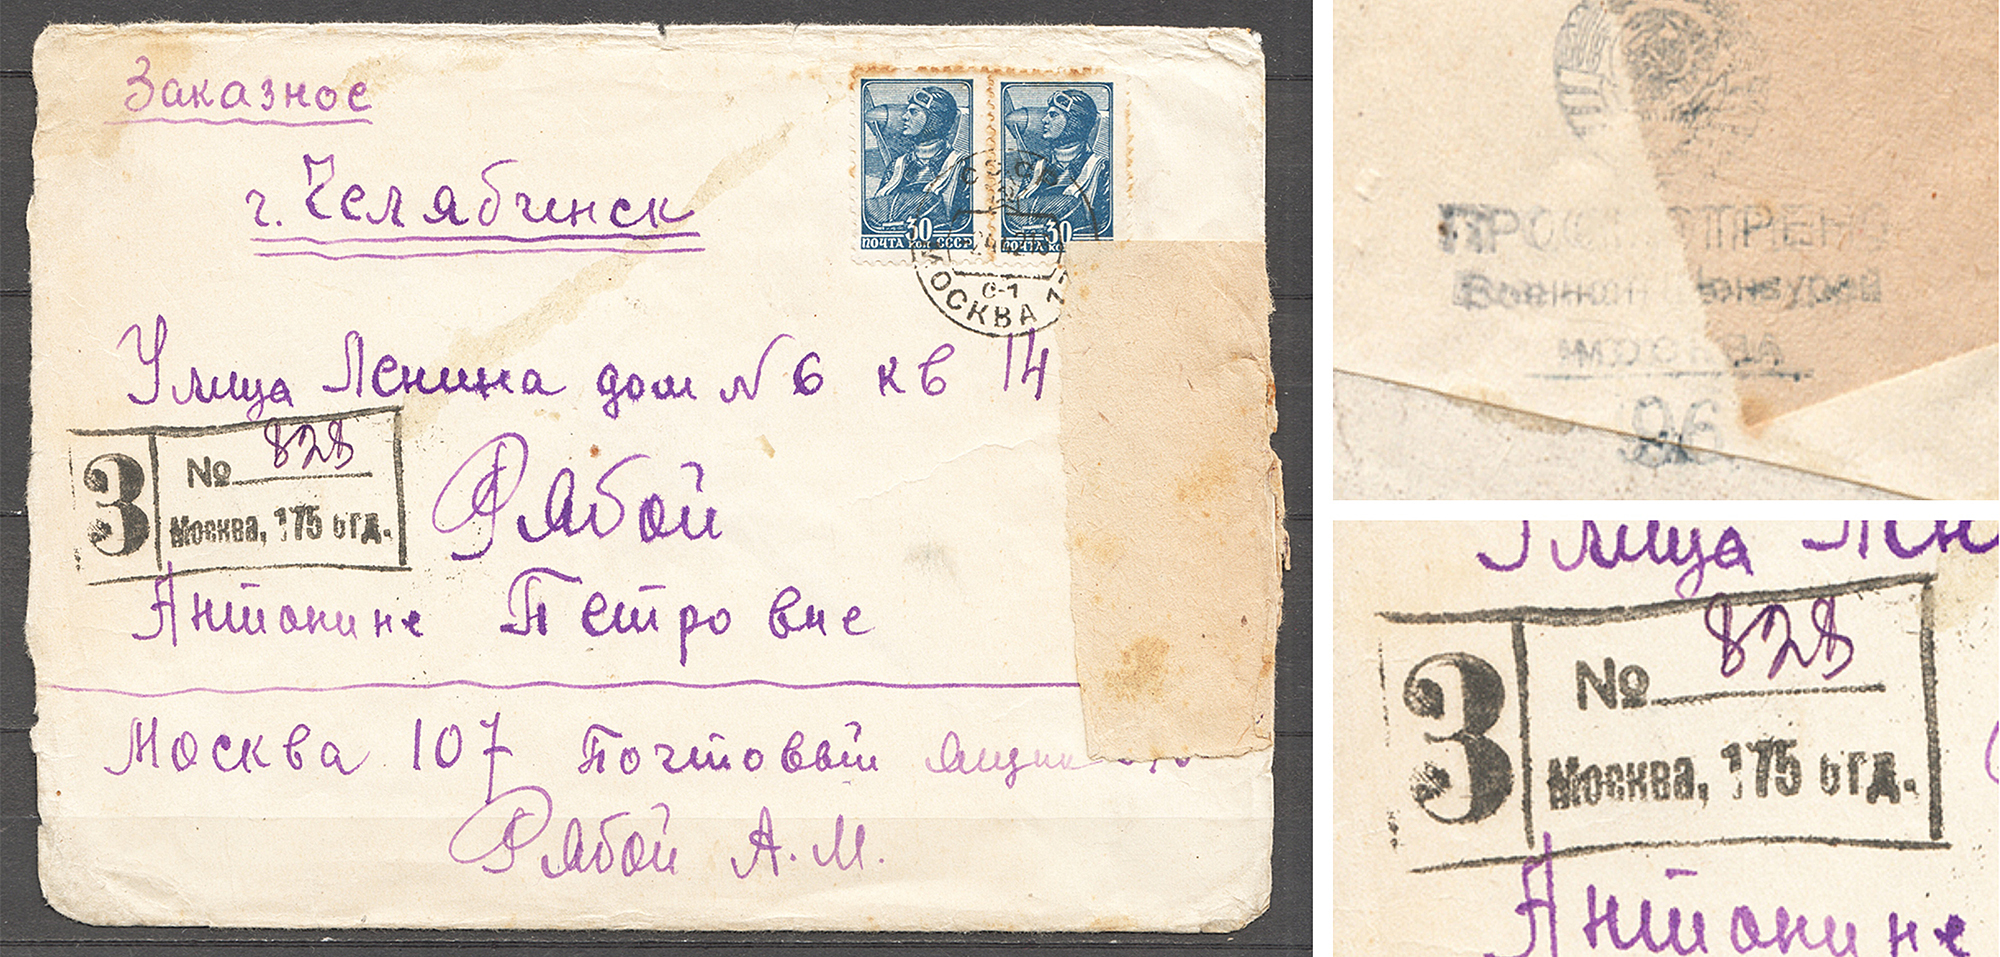 Заказное
г. Челябинск
ПОЧТА КОП. СССР
30
ПОЧТА КО
30
СССР
МОСКВА
Улица Ленина дом № 6 кв 14
З
№ 828
Москва, 175 отд.
Рябой
Антонине Петровне
Москва 107 Почтовый ящик
Рябой А. М.
ПРОСМОТРЕНО
Военной Цензурой
МОСКВА
96
Улица Лен
З
№ 828
Москва, 175 отд.
Антонине